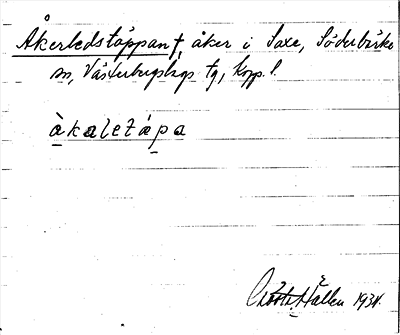 Åkerledstäppan †, åker i Saxe, Söderbärke
sn, Västerbergslags tg, Kopp. l.
àkaletápa
Hällen 1934.